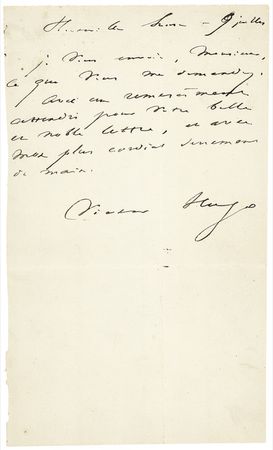 Hauteville House - 9 juillet
je vous envoie, Monsieur,
ce que vous me demandez,
avec un remerciement
attendri pour votre belle
et noble lettre, et avec
mon plus cordial serrement
de main.
Victor Hugo